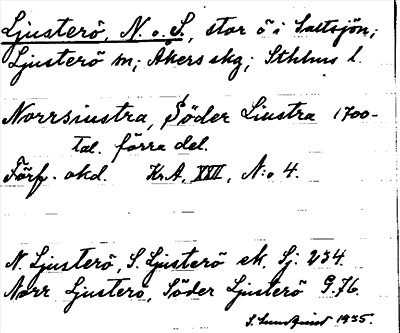 Ljusterö, N. o. S., stor ö i Saltsjön;
Ljusterö sn; Åkers skg; Sthlms l.
Norrsiustra, Söder Liustra 1700-
tal. förra del.
Förf. okd. Kr.A. XXII, N:o 4.
N. Ljusterö, S. Ljusterö ek. Sj. 234.
Norr Ljusterö, Söder Ljusterö G.76.
S. Lundquist 1935.